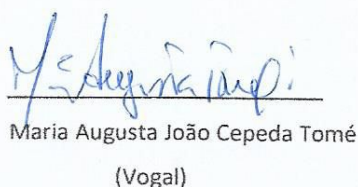 Mª Augusta Tomé
Maria Augusta João Cepeda Tomé
(Vogal)